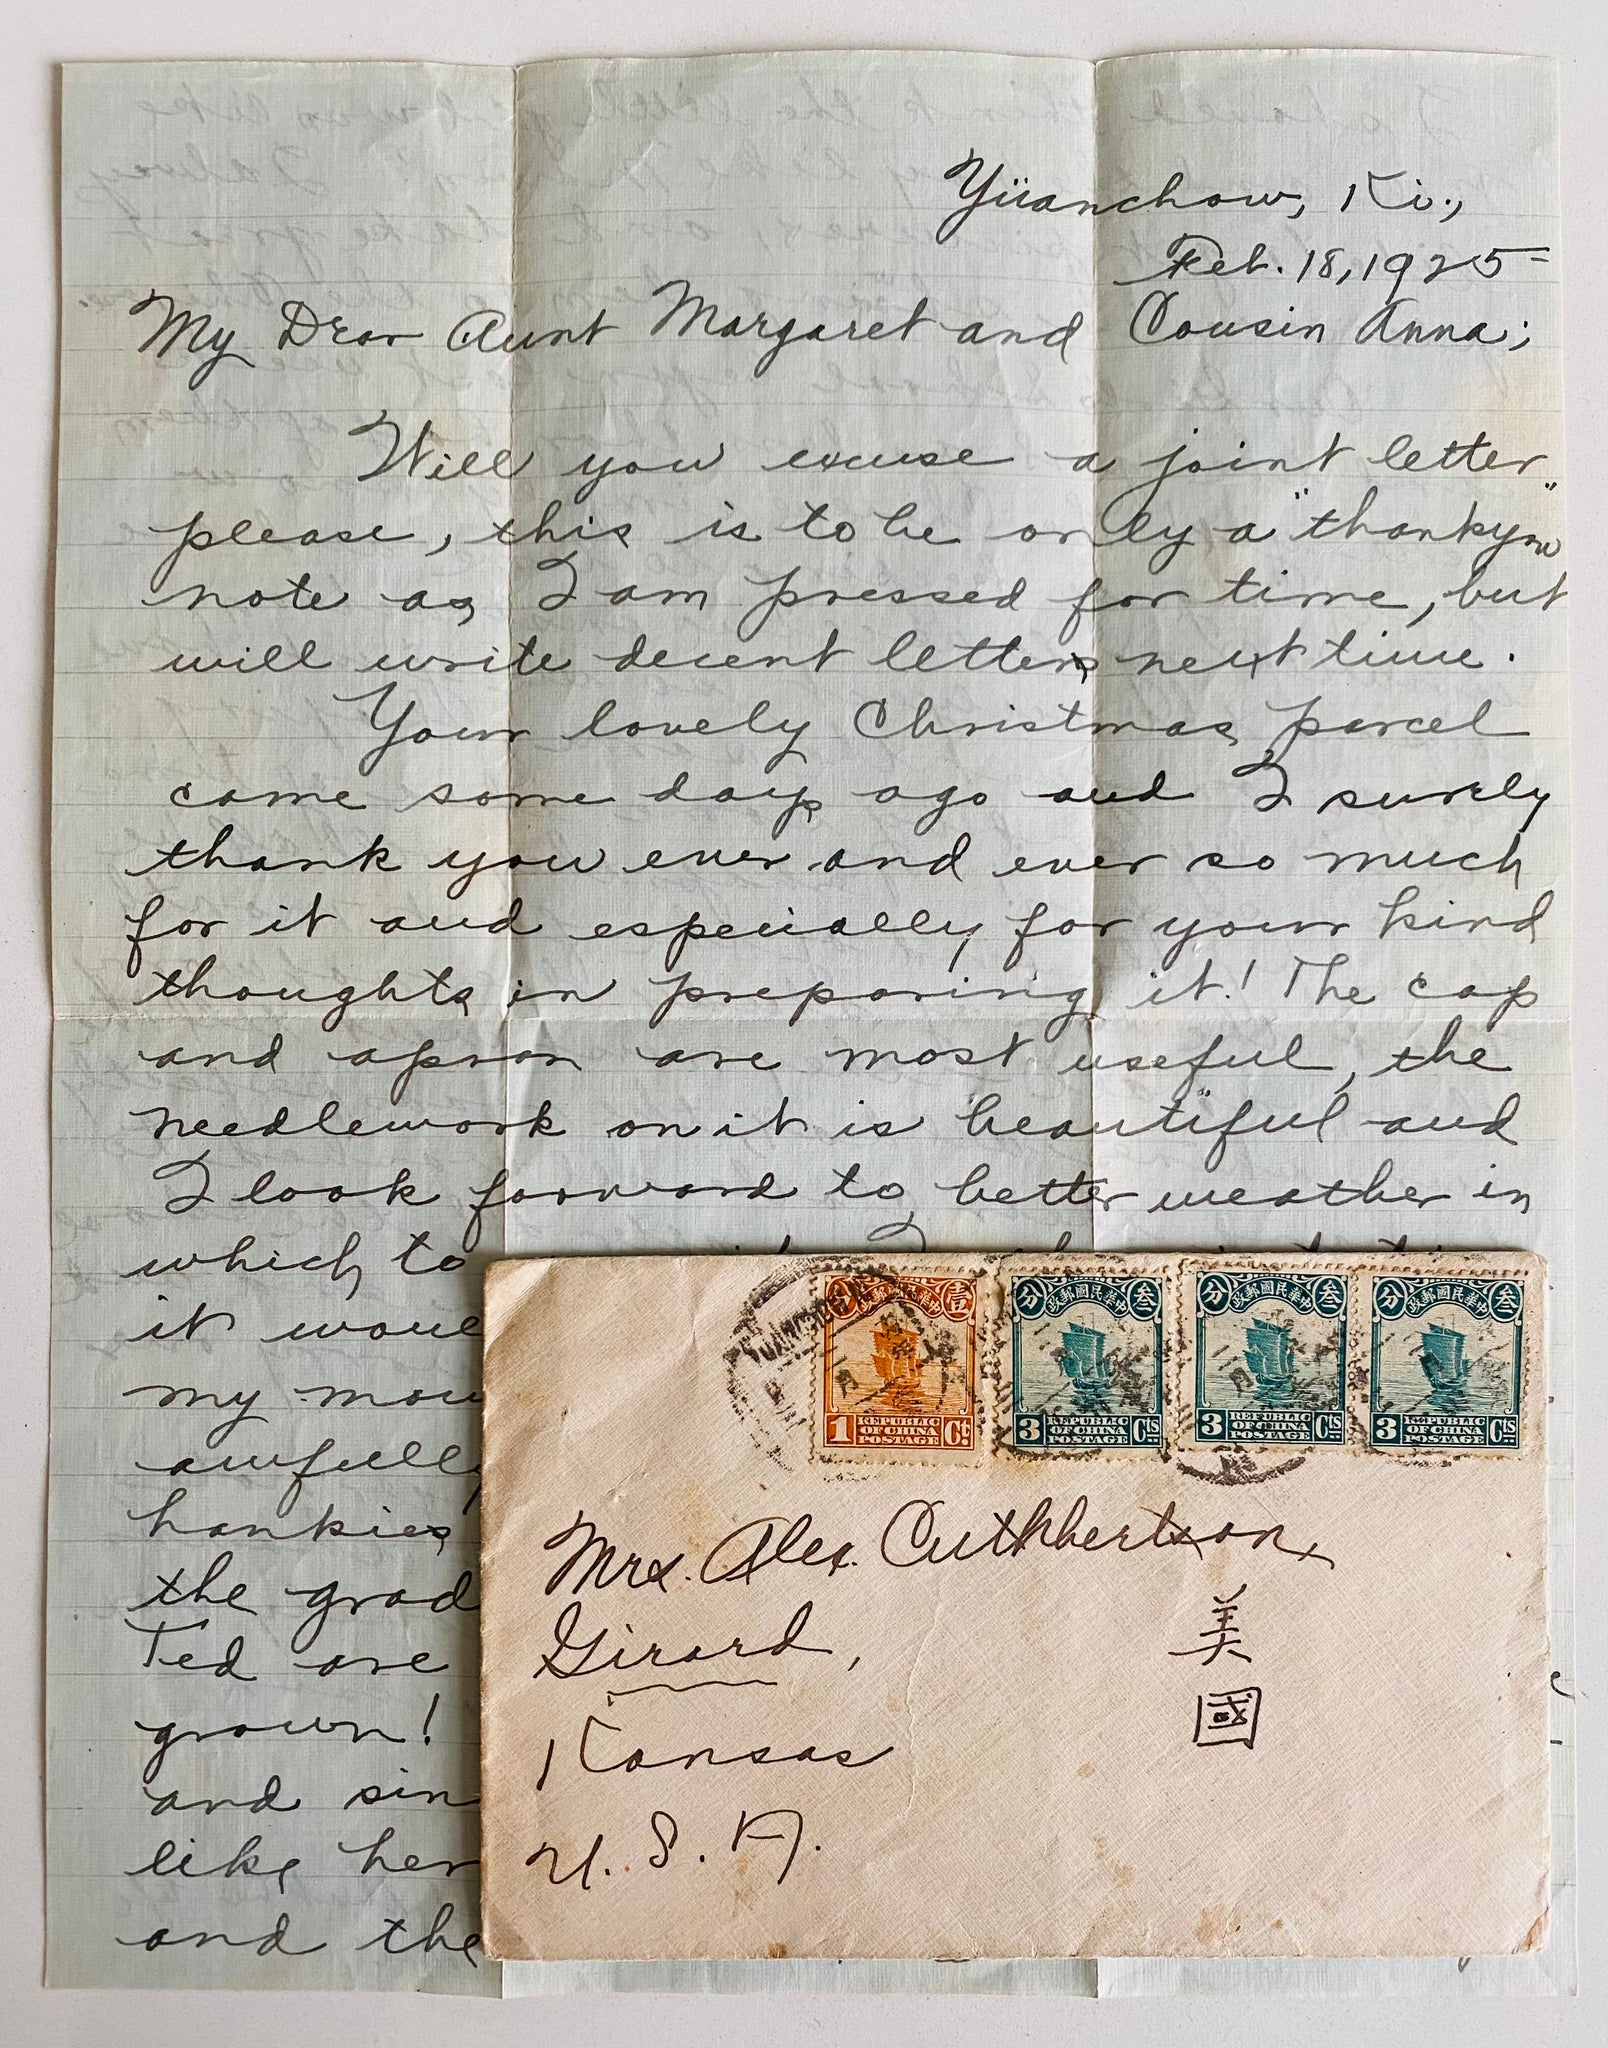 Yüanchow, Ki.,
Feb. 18, 1925
My Dear Aunt Margaret and Cousin Anna;
Will you excuse a joint letter
please, this is to be only a "thankyou"
note as I am pressed for time, but
will write decent letters next time.
Your lovely Christmas parcel
came some days ago and I surely
thank you ever and ever so much
for it and especially for your kind
thoughts in preparing it! The cap
and apron are most useful, the
needlework on it is beautiful and
I look forward to better weather in
which to
it woul
my mou
awfully
hankies
the grad
Ted are
grown!
and sin
like her
and the
壹 中華民國郵政 分
1 REPUBLIC OF CHINA POSTAGE Ct
叁 中華民國郵政 分
3 REPUBLIC OF CHINA POSTAGE Cts
叁 中華民國郵政 分
3 REPUBLIC OF CHINA POSTAGE Cts
叁 中華民國郵政 分
3 REPUBLIC OF CHINA POSTAGE Cts
Mrs. Alex. Cuthbertson,
Girard,
Kansas
U. S. A.
美
國